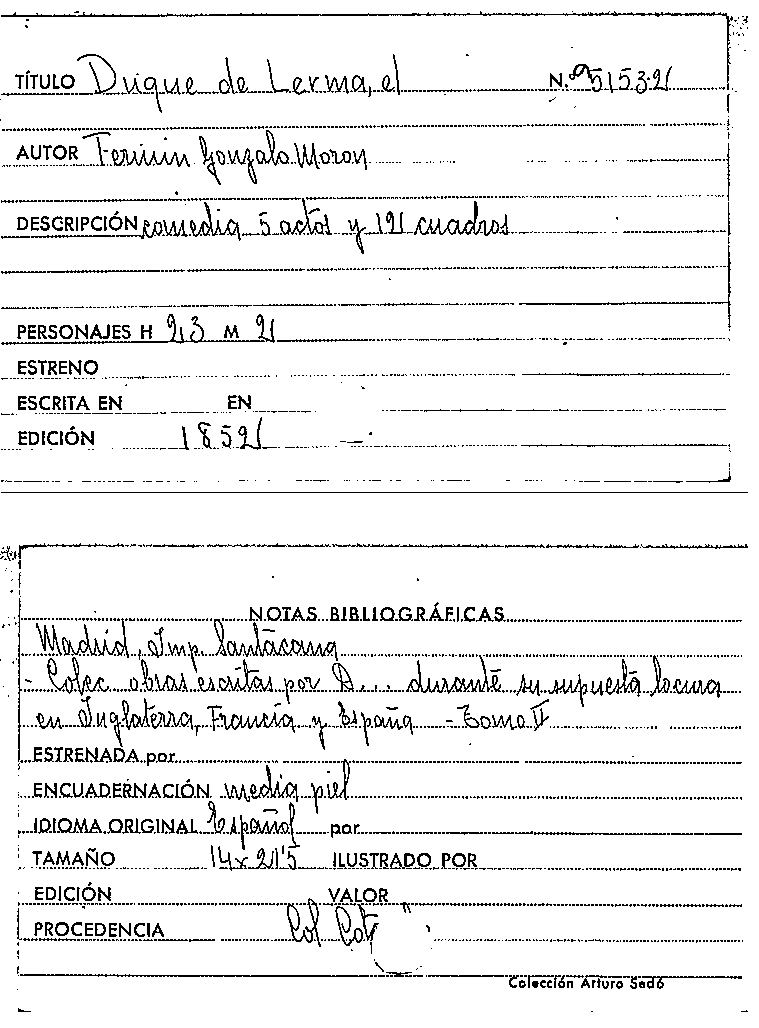 TÍTULO Duque de Lerma, el N.º
AUTOR Fermin Gonzalo Moron
DESCRIPCIÓN comedia 5 actos y 12 cuadros
PERSONAJES H 23 M 2
ESTRENO
ESCRITA EN EN
EDICIÓN 1852
NOTAS BIBLIOGRÁFICAS
Madrid, Imp. Santacana
- Colec. obras escritas por D... durante su supuesta locura
en Inglaterra, Francia y España - Tomo II
ESTRENADA por
ENCUADERNACIÓN media piel
IDIOMA ORIGINAL Español por
TAMAÑO 14x21'5 ILUSTRADO POR
EDICIÓN VALOR
PROCEDENCIA Col Cot
Colección Arturo Sedó